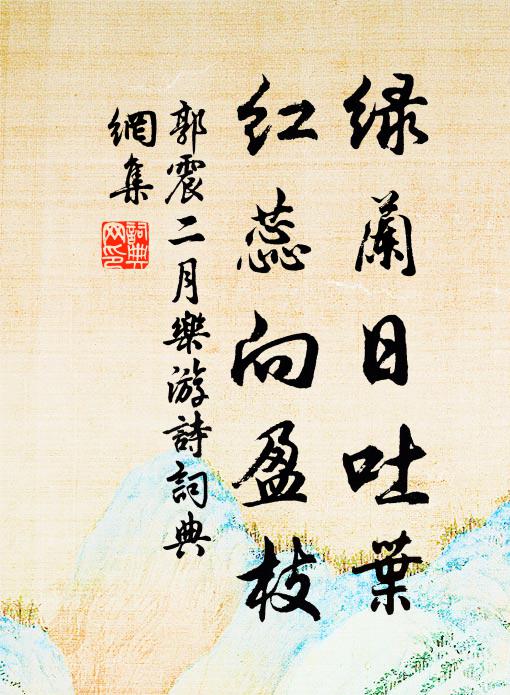 绿蘭日吐葉
紅蕊向盈枝
郭震二月樂游詩詞典
網集
詞典
网印